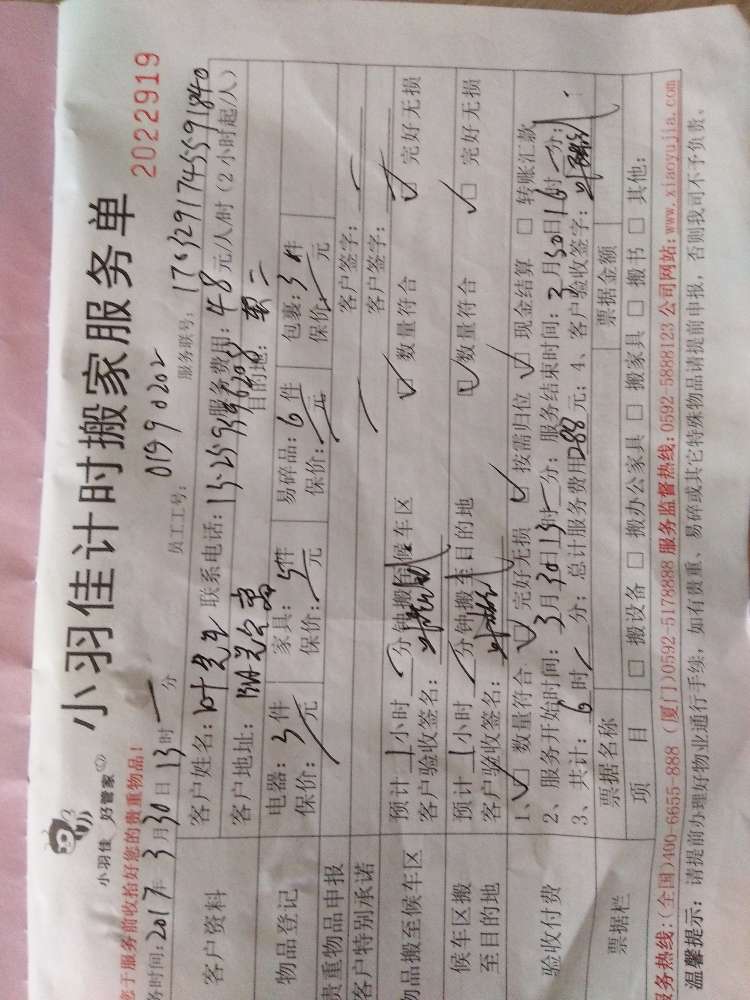 小羽佳计时搬家服务单
小羽佳 好管家
2022919
您于服务前收拾好您的贵重物品!
员工工号: 01990202 服务联号: 1703291745591840
务时间: 2017年3月30日13时 分
客户资料
客户姓名: 叶先生 联系电话: 服务费用: 48元/人/时 (2小时起/人)
客户地址: 目的地:
物品登记
电器: 3件 家具: 5件 易碎品: 6件 包裹: 3件
保价: 元 保价: 元 保价: 元 保价: 元
贵重物品申报 客户签字:
客户特别承诺 客户签字:
物品搬至候车区
预计 1小时 分钟搬至候车区 ☑ 数量符合 ☑ 完好无损
客户验收签名:
候车区搬至目的地
预计 1小时 分钟搬至目的地 ☑ 数量符合 ☑ 完好无损
客户验收签名:
验收付费
1、☑ 数量符合 ☑ 完好无损 ☑ 按需归位 ☑ 现金结算 □ 转账汇款
2、服务开始时间: 3月30日13时 分; 服务结束时间: 3月30日16时 分;
3、共计: 6时 分; 总计服务费用288元; 4、客户验收签字:
票据栏
票据名称 票据金额
项目 □ 搬设备 □ 搬办公家具 □ 搬家具 □ 搬书 □ 其他:
务热线: (全国)400-6655-888 (厦门)0592-5178888 服务监督热线: 0592 5888123 公司网站: www.xiaoyujia.com
温馨提示: 请提前办理好物业通行手续, 如有贵重、易碎或其它特殊物品请提前申报, 否则我司不予负责。